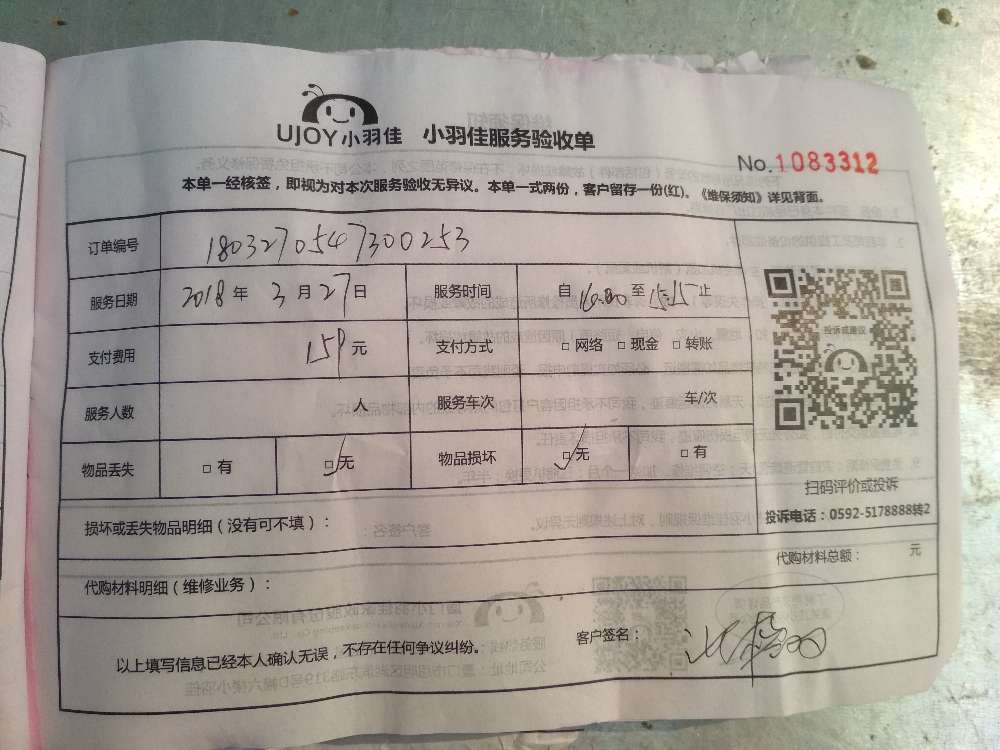 UJOY小羽佳 小羽佳服务验收单
No.1083312
本单一经核签，即视为对本次服务验收无异议。本单一式两份，客户留存一份(红)。《维保须知》详见背面。
订单编号 1803270547300253
服务日期 2018 年 3 月 27 日 服务时间 自 至 15:15 止
支付费用 159 元 支付方式 □ 网络 □ 现金 □ 转账
服务人数 人 服务车次 车/次
物品丢失 □ 有 □ 无 物品损坏 □ 无 □ 有
投诉或建议
扫码评价或投诉
投诉电话：0592-5178888转2
损坏或丢失物品明细（没有可不填）：
代购材料总额： 元
代购材料明细（维修业务）：
以上填写信息已经本人确认无误，不存在任何争议纠纷。
客户签名：